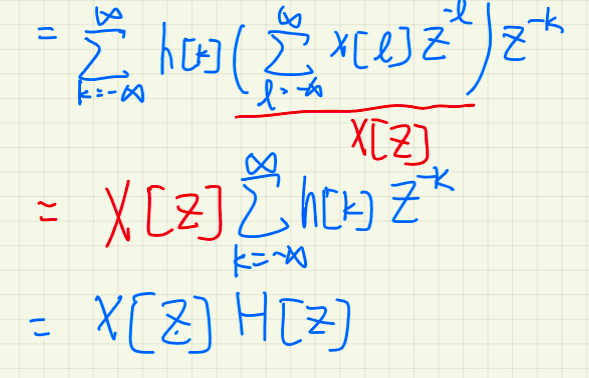 = ∑_{k=-∞}^{∞} h[k] ( ∑_{l=-∞}^{∞} x[l] z^{-l} ) z^{-k}
X[z]
= X[z] ∑_{k=-∞}^{∞} h[k] z^{-k}
= X[z] H[z]